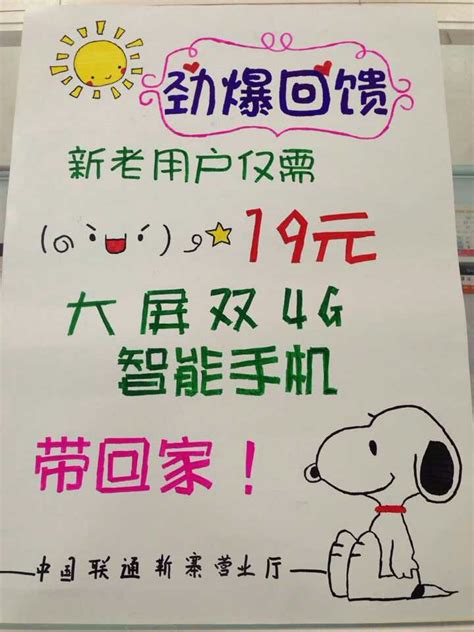 劲爆回馈
新老用户仅需
19元
大屏双4G
智能手机
带回家！
中国联通新寨营业厅